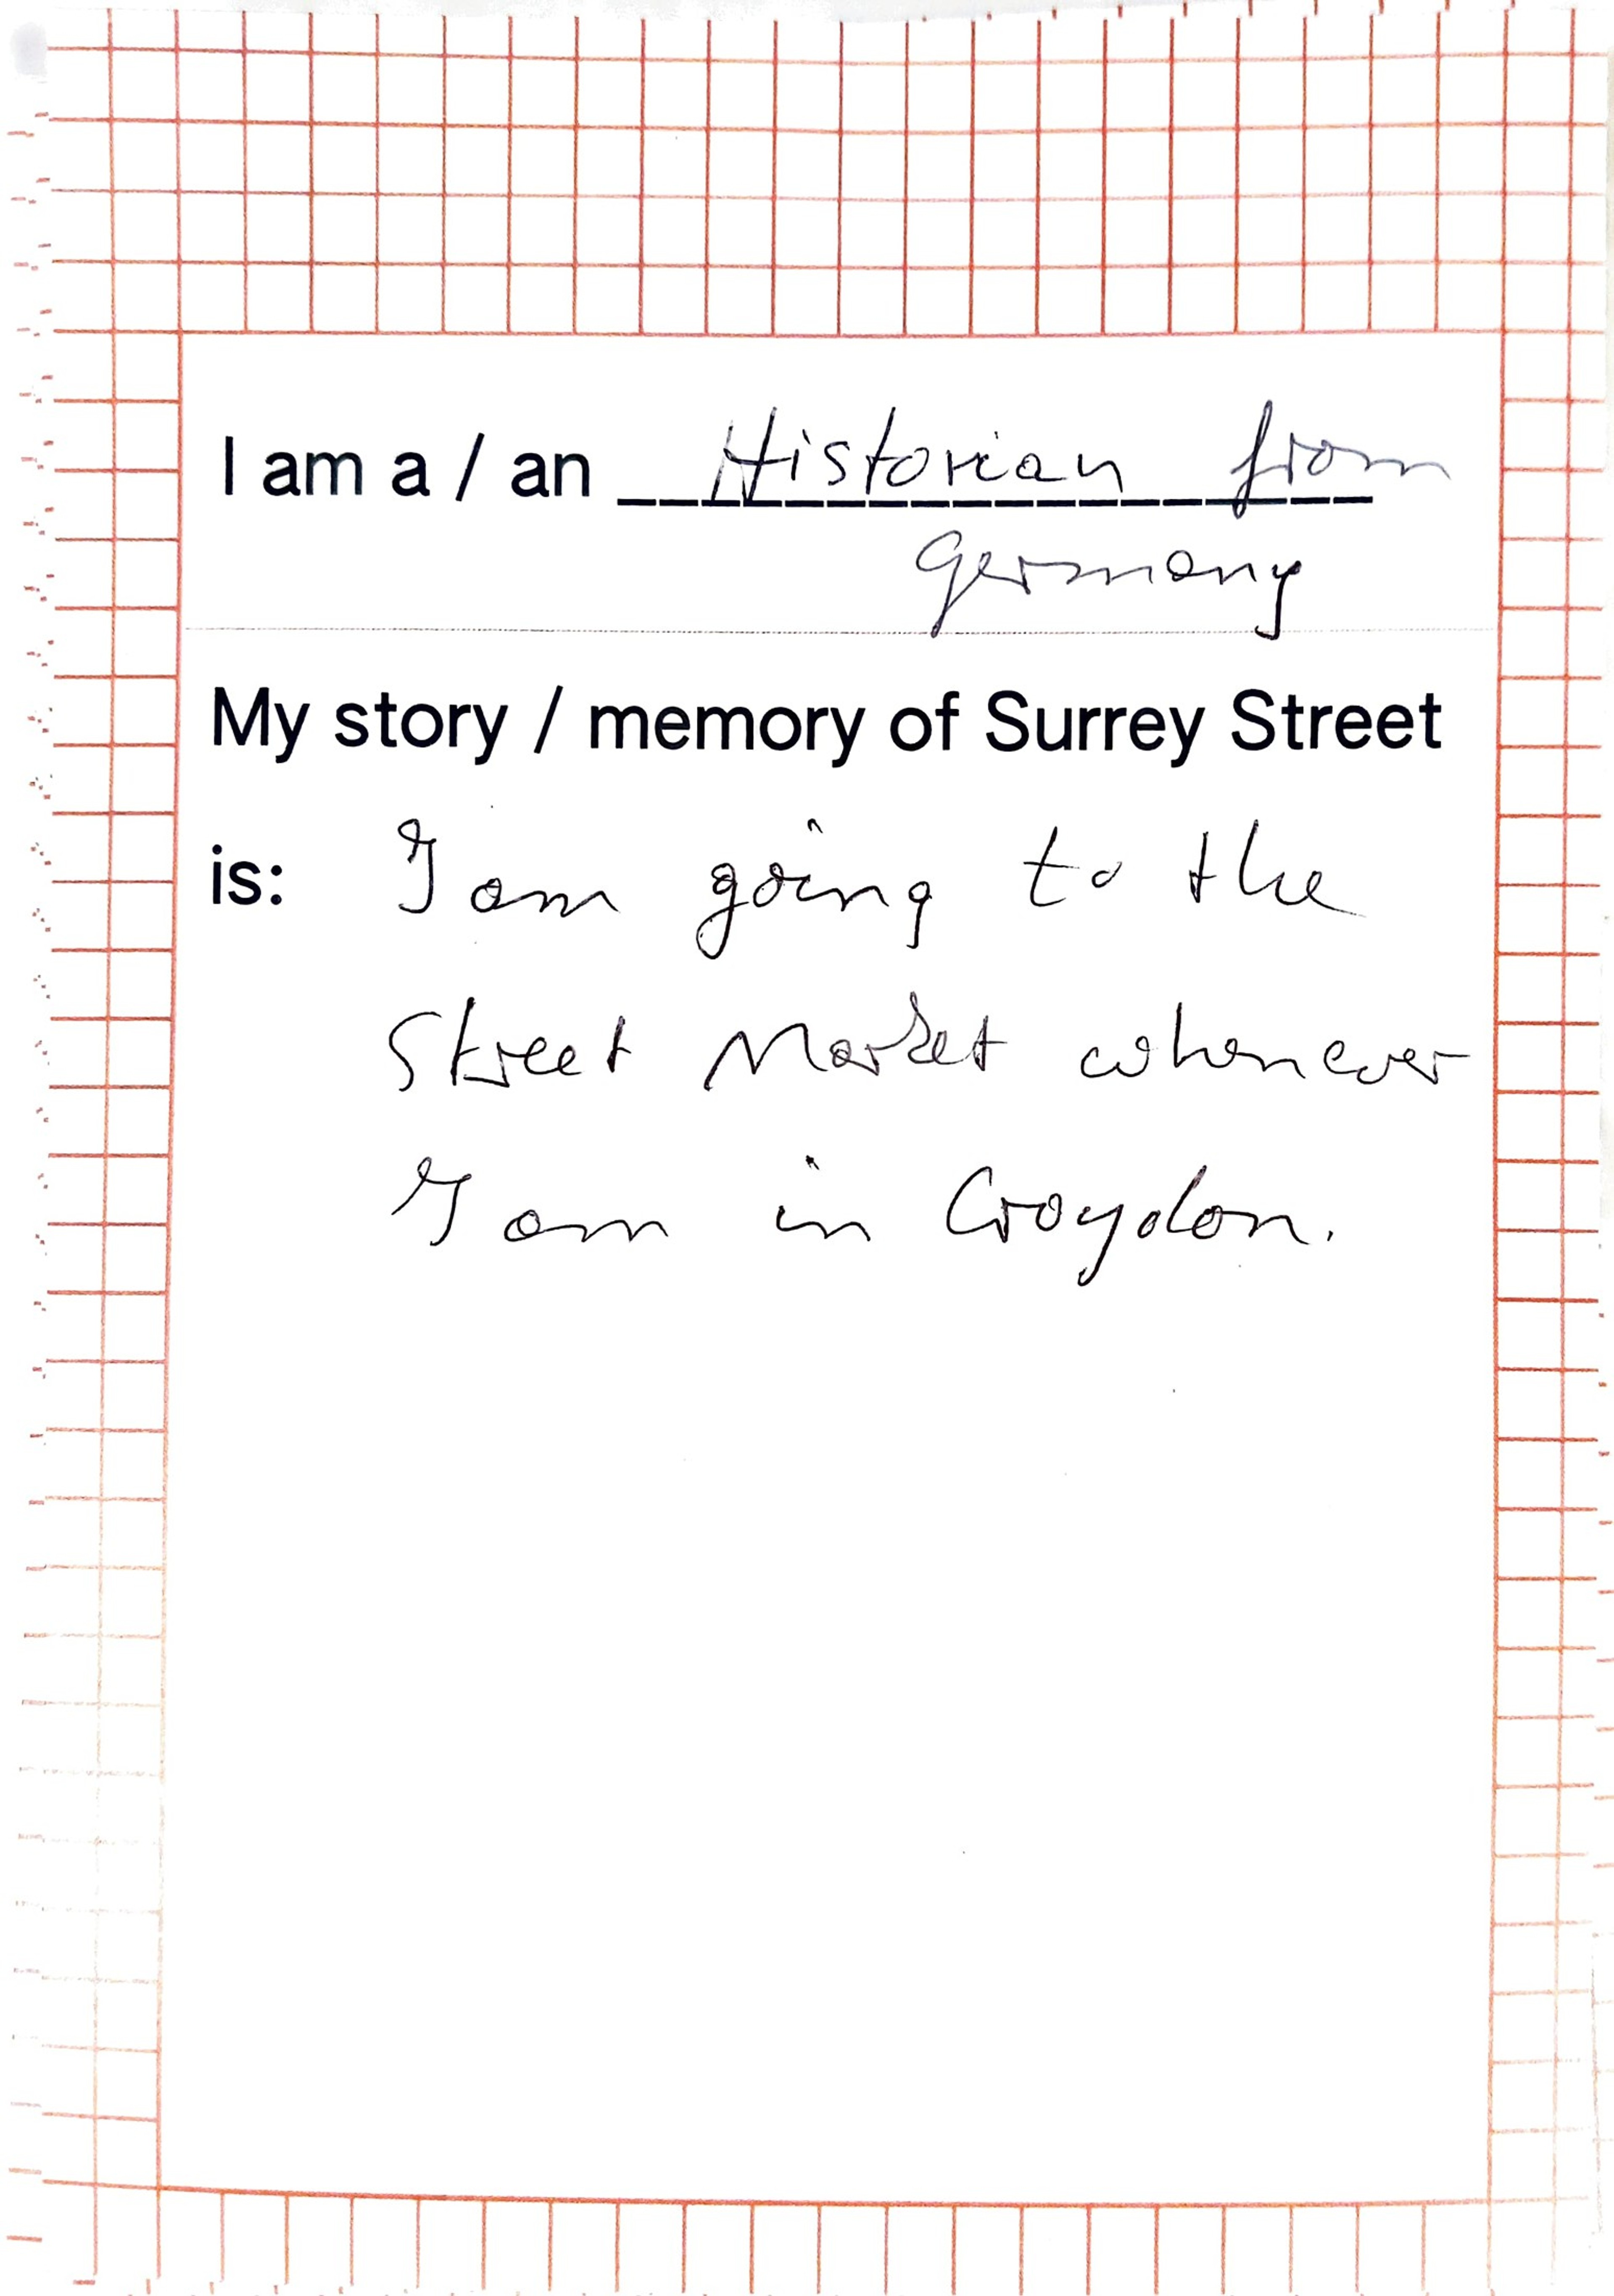 I am a / an Historian from
Germany
My story / memory of Surrey Street
is: I am going to the
Street Market whenever
I am in Croydon.